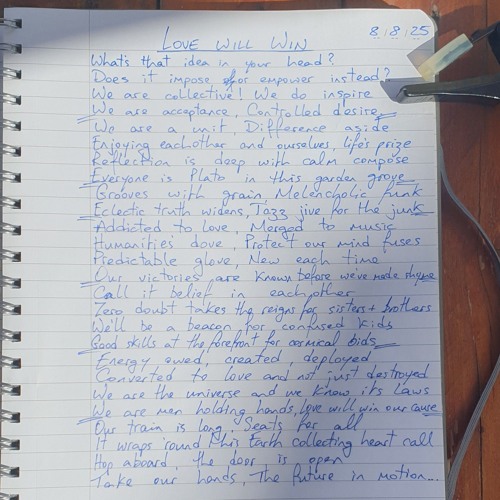 8/8/25
LOVE WILL WIN
What's that idea in your head?
Does it impose or empower instead?
We are collective! We do inspire
We are acceptance, Controlled desire
We are a unit, Difference aside
Enjoying eachother and ourselves, life's prize
Reflection is deep with calm compose
Everyone is Plato in this garden grove
Grooves with grain, Melencholic funk
Eclectic truth widens, Jazz jive for the junks
Addicted to love, Merged to music
Humanities dove, Protect our mind fuses
Predictable glove, New each time
Our victories are known before we've made rhyme
Call it belief in each other
Zero doubt takes the reigns for sisters + brothers
We'll be a beacon for confused kids
Good skills at the forefront for cosmical bids
Energy owed, created, deployed
Converted to love and not just destroyed
We are the universe and we know its Laws
We are men holding hands, love will win our cause
Our train is long, Seats for all
It wraps 'round this Earth collecting heart call
Hop aboard, the door is open
Take our hands, The future in motion...